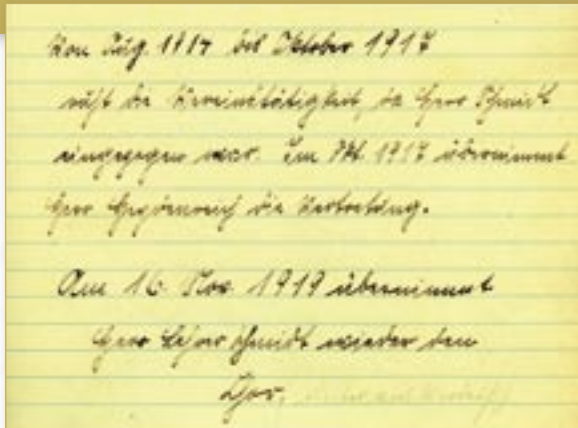 Von Aug. 1914 bis Oktober 1917
ruht die Vereinstätigkeit, da Herr Schmidt
eingezogen war. Im Okt. 1917 übernimmt
Herr die Vertretung.
Am 16. Nov. 1919 übernimmt
Herr Lehrer Schmidt wieder den
Chor.